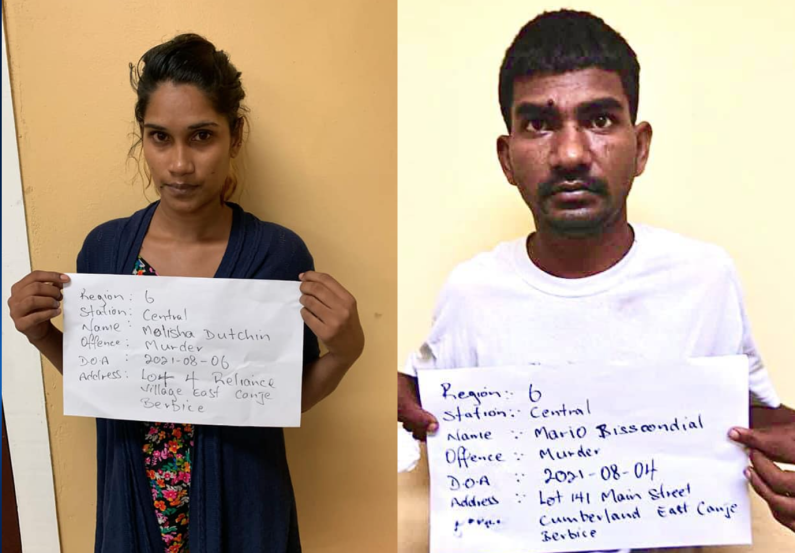 Region : 6
Station : Central
Name : Molisha Dutchin
Offence : Murder
D.O.A : 2021-08-06
Address : Lot 4 Reliance
Village East Canje
Berbice
Region :- 6
Station :- Central
Name :- Mario Bissoondial
Offence :- Murder
D.O.A :- 2021-08-04
Address :- Lot 141 Main Street
Cumberland East Canje
Berbice